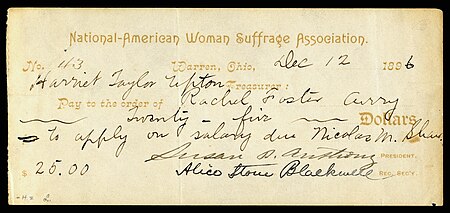 National-American Woman Suffrage Association.
No. 113 Warren, Ohio, Dec 12 1896
Harriet Taylor Upton Treasurer:
Pay to the order of Rachel Foster Avery
Twenty-five Dollars
to apply on salary due Nicolas M. Shaw
$25.00 Susan B. Anthony PRESIDENT.
Alice Stone Blackwell REC. SEC'Y.